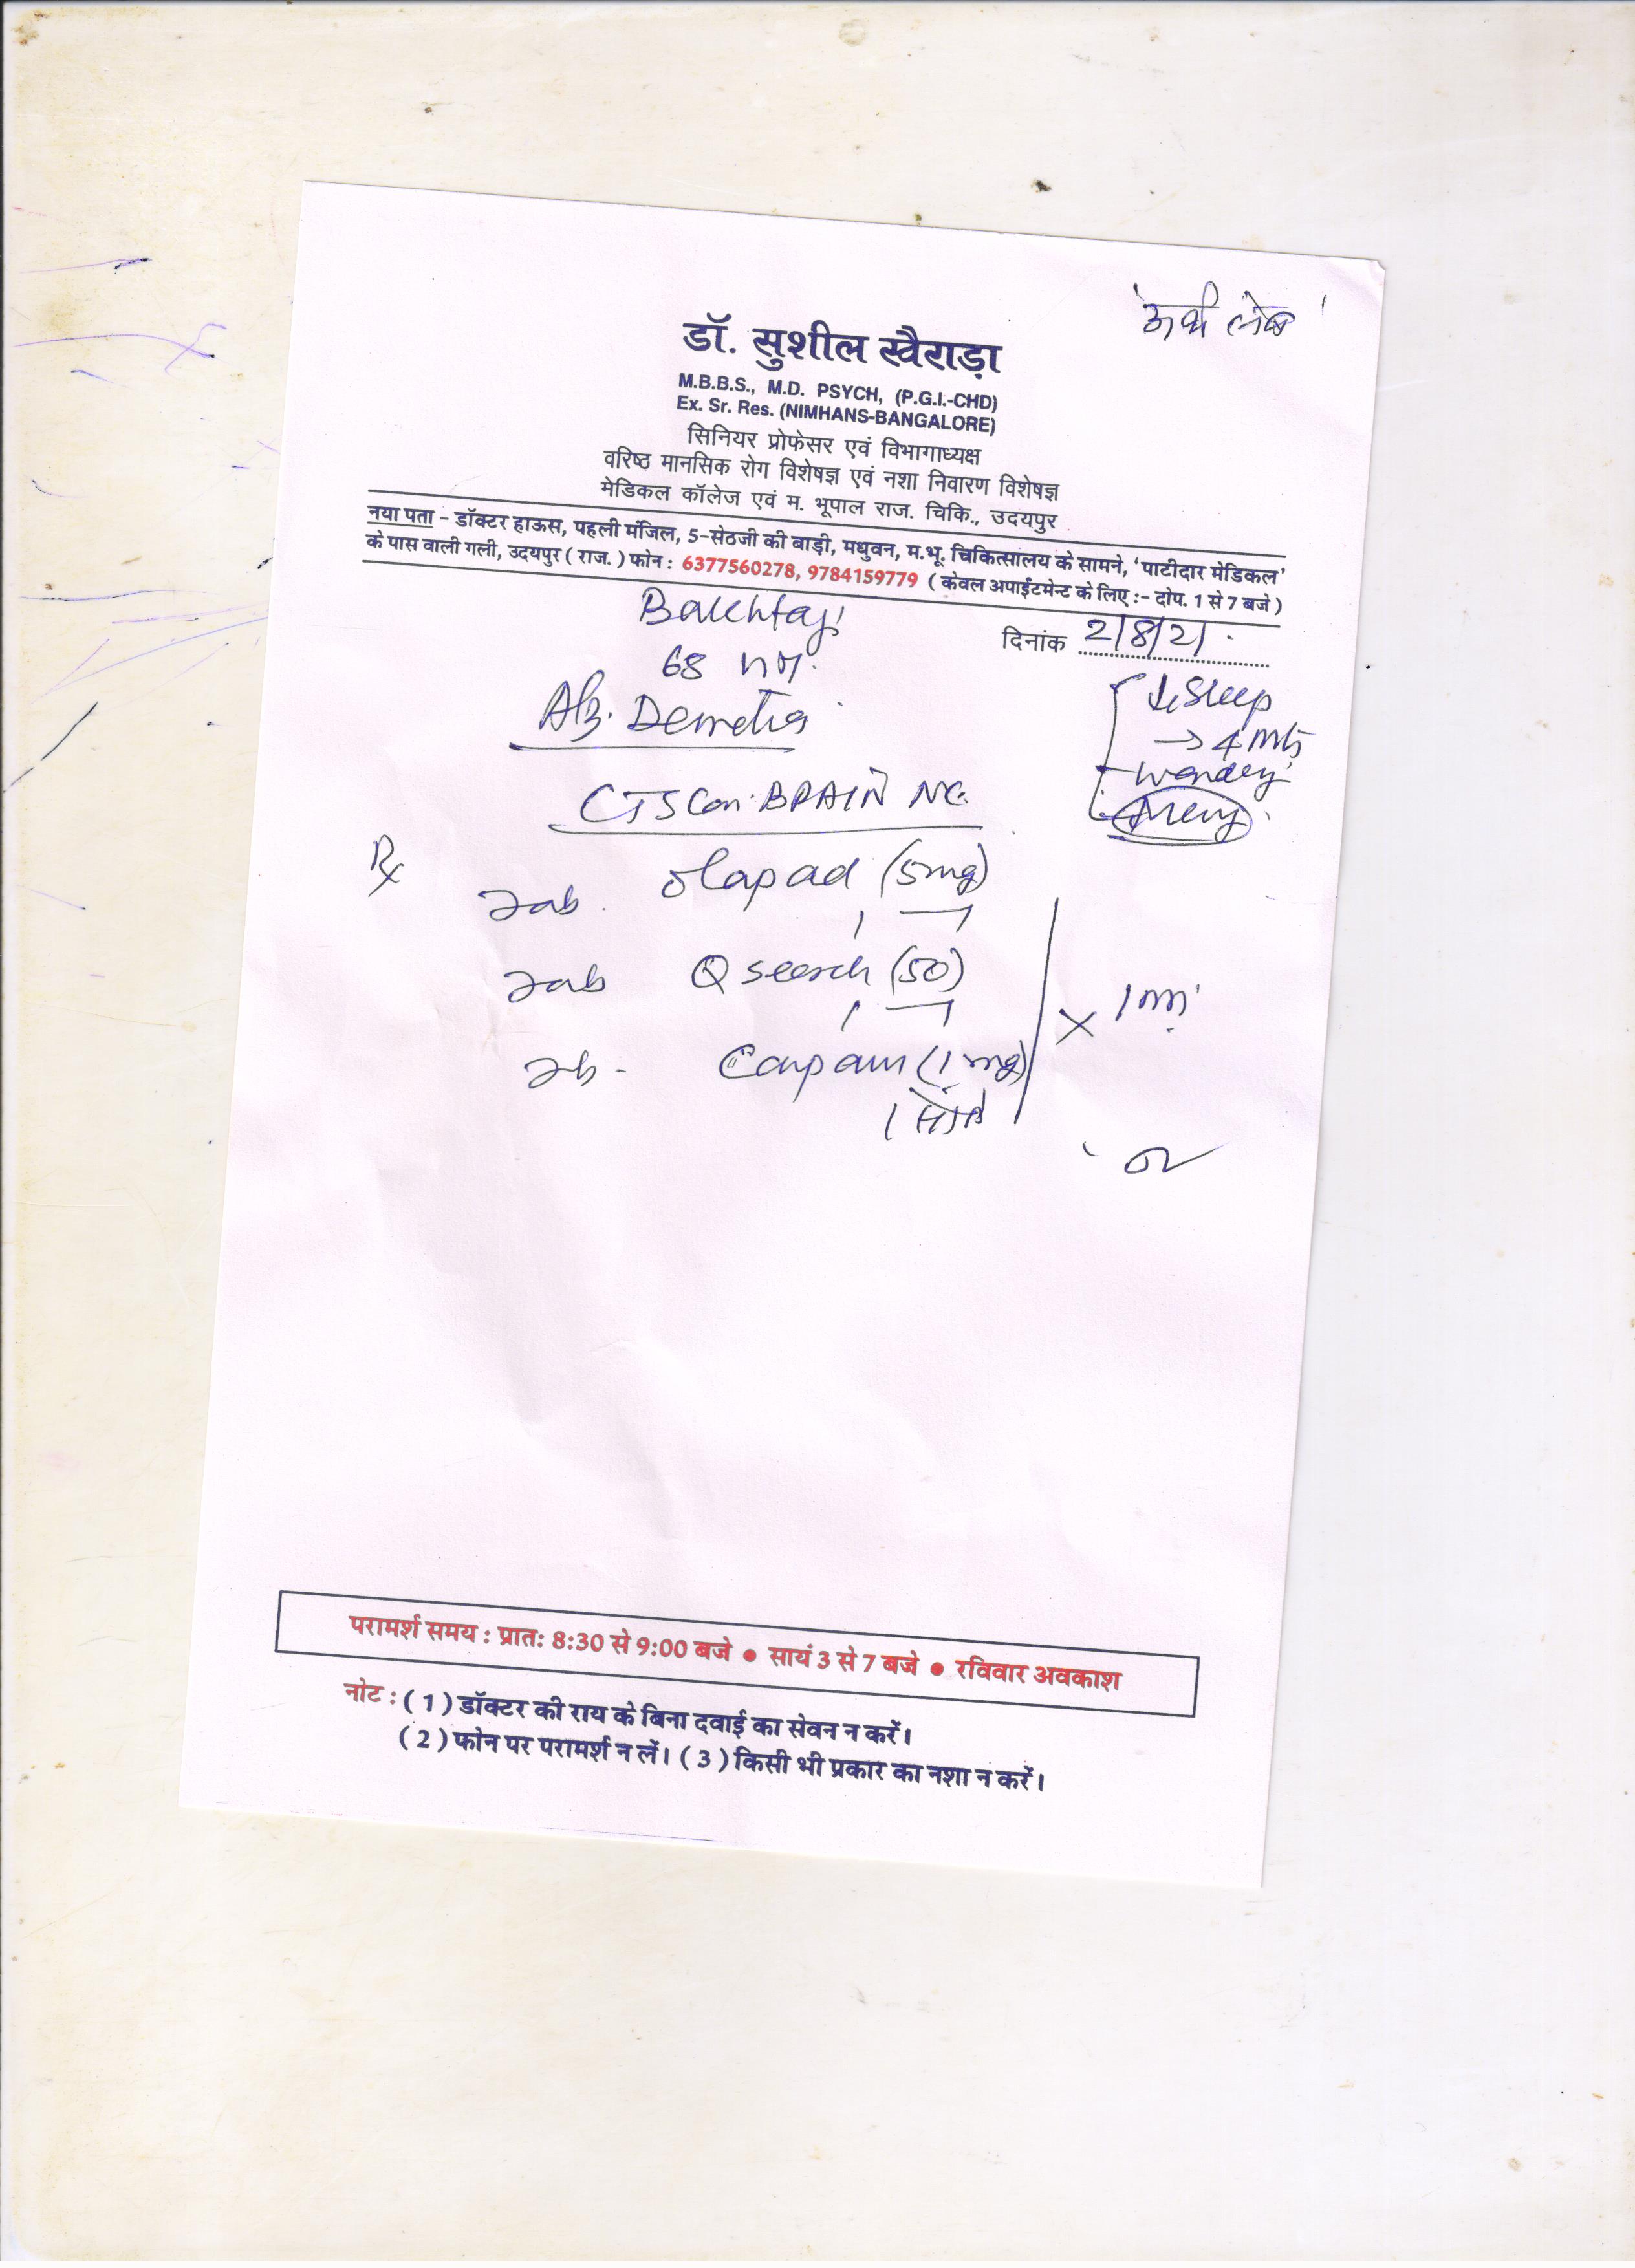 डॉ. सुशील खैराड़ा
M.B.B.S., M.D. PSYCH, (P.G.I.-CHD)
Ex. Sr. Res. (NIMHANS-BANGALORE)
सिनियर प्रोफेसर एवं विभागाध्यक्ष
वरिष्ठ मानसिक रोग विशेषज्ञ एवं नशा निवारण विशेषज्ञ
मेडिकल कॉलेज एवं म. भूपाल राज. चिकि., उदयपुर
नया पता - डॉक्टर हाऊस, पहली मंजिल, 5-सेठजी की बाड़ी, मधुवन, म.भू. चिकित्सालय के सामने, 'पाटीदार मेडिकल'
के पास वाली गली, उदयपुर ( राज. ) फोन : 6377560278, 9784159779 ( केवल अपाईंटमेन्ट के लिए :- दोप. 1 से 7 बजे )
दिनांक 2/8/21
68
Alz. Demetia
↓ Sleep
→ 4 mts
CT Scan BRAIN
Rx
Tab. olapad (5mg)
Tab Qsearch (50)
x 1
(1 mg)
1
परामर्श समय : प्रातः 8:30 से 9:00 बजे ● सायं 3 से 7 बजे ● रविवार अवकाश
नोट : ( 1 ) डॉक्टर की राय के बिना दवाई का सेवन न करें।
( 2 ) फोन पर परामर्श न लें। ( 3 ) किसी भी प्रकार का नशा न करें।